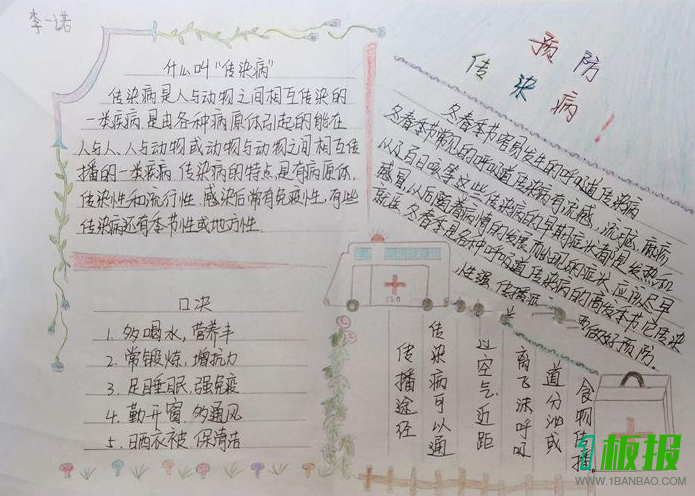 李一诺
预防
传染病！
什么叫“传染病”
传染病是人与动物之间相互传染的
一类疾病是由各种病原体引起的能在
人与人、人与动物或动物与动物之间相互传
播的一类疾病 传染病的特点是有病原体，
传染性和流行性，感染后常有免疫性，有些
传染病还有季节性或地方性．
冬春季节容易发生的呼吸道传染病
冬春季节常见的呼吸道传染病有流感，
以及百日咳等这些传染病的早期症状都是发热和
感冒，以后随着病情的发展而出现
应该尽早
就医．冬春季是各种呼吸道传染病的高发季节它传染
性强
要做好预防．
口决
1．多喝水，营养丰
2．常锻炼，增抗力
3．足睡眠，强免疫
4．勤开窗，多通风
5．晒衣被 保清洁
120
传播途径
传染病可以通
过空气．近距
离飞沫呼吸
道分泌或
食物传播．
板报
WWW.1BANBAO.COM